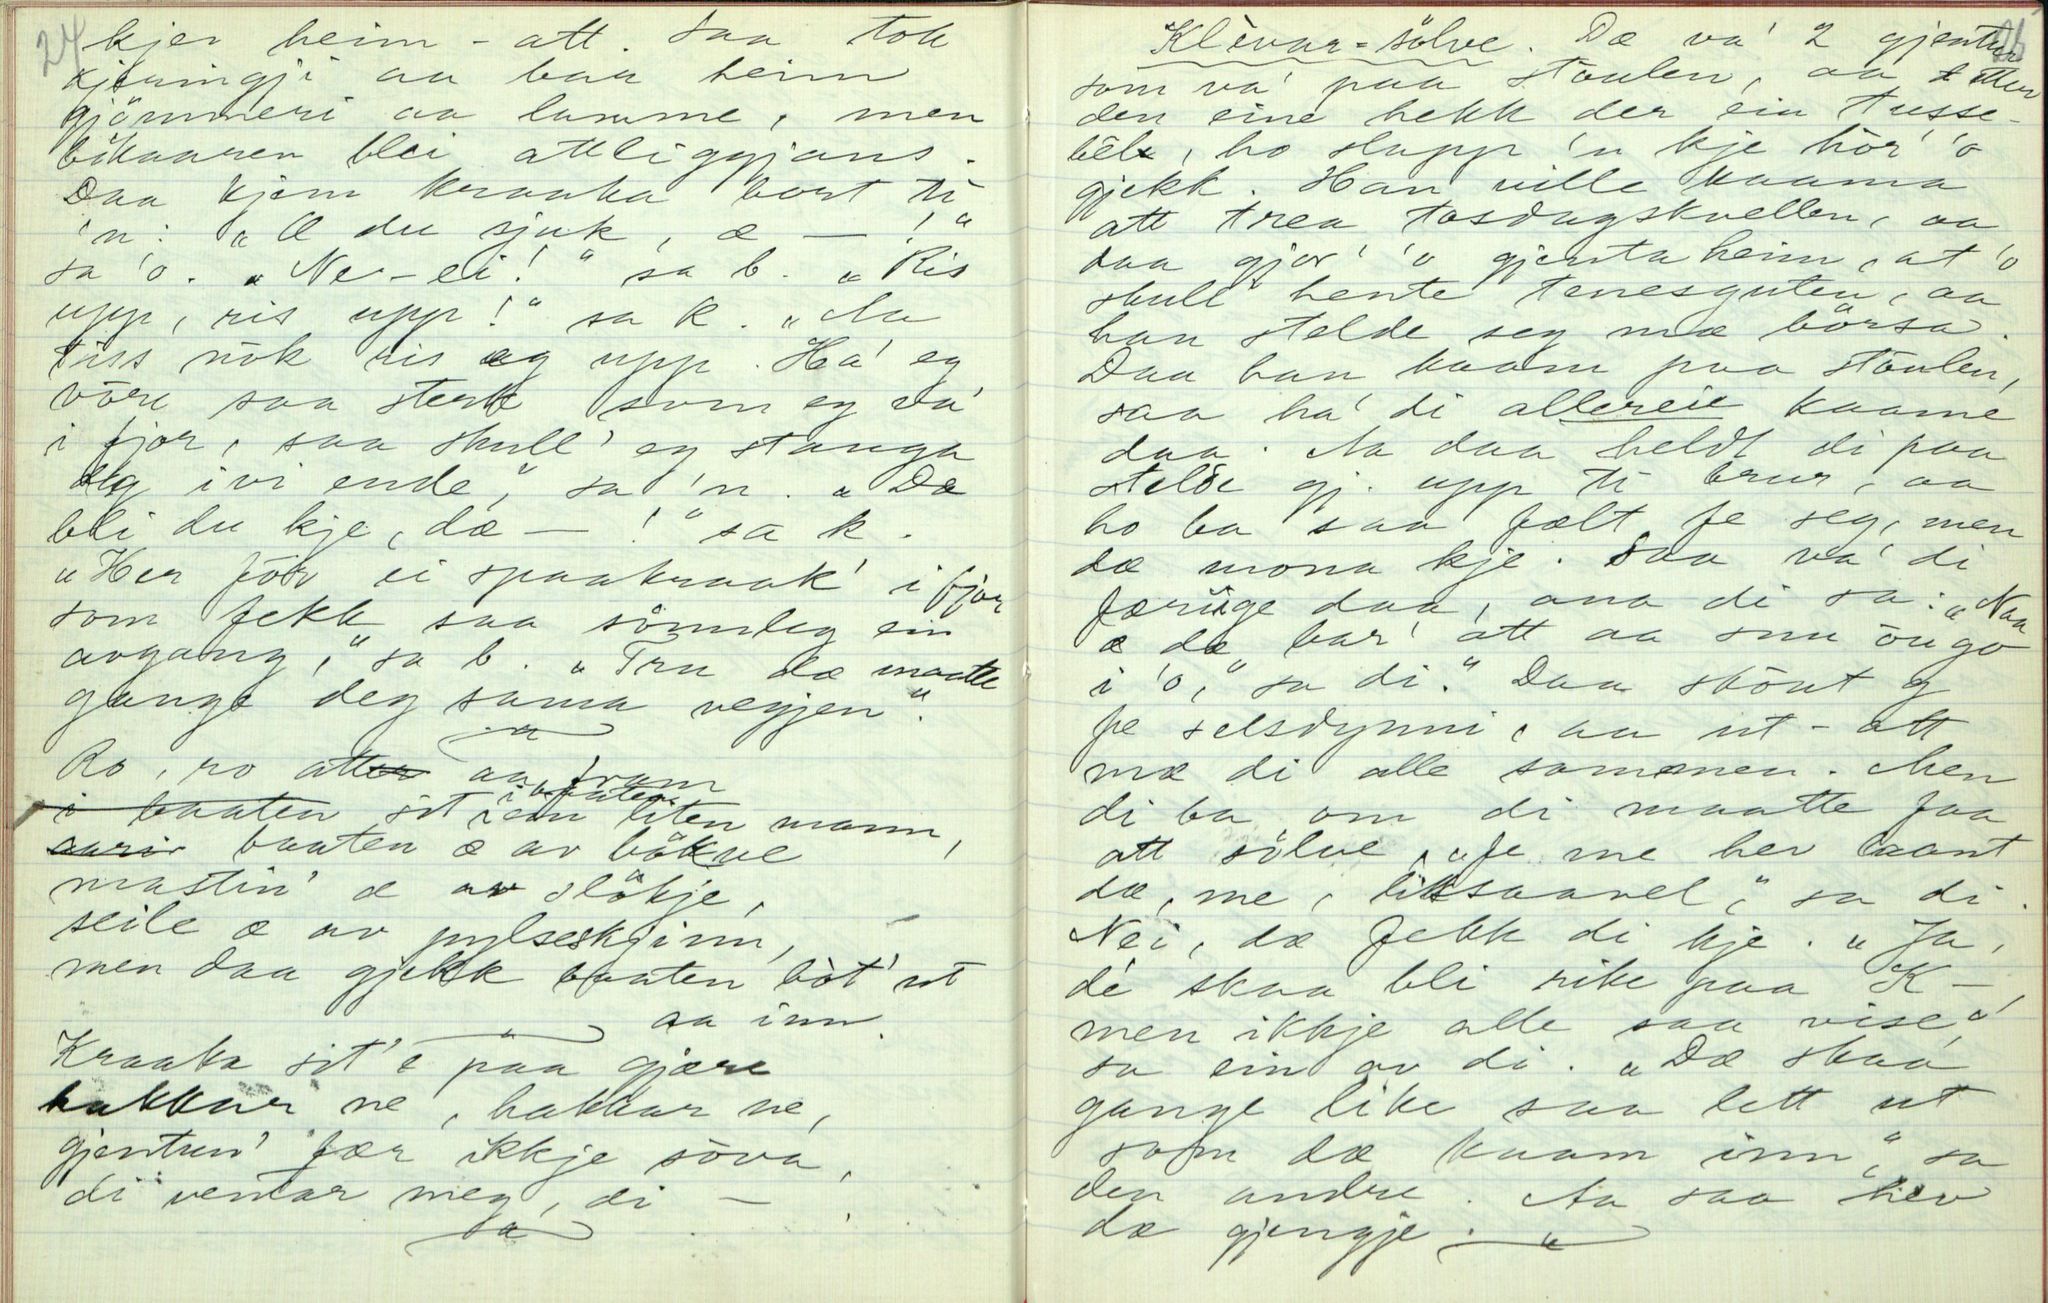 24
kjer heim - att. Saa tok
kjeringji aa baa heim
gjömmeri aa lamme, men
bökaaren blei attliggjans.
Daa kjem kraaka bort ti
'n: „Æ du sjuk, æ — !“
sa 'o. „Ne-ei!“ sa b. „Ris
upp, ris upp!“ sa k. „Aa
tiss nok ris eg upp. Ha' eg
vöre saa sterk som eg va'
i fjor, saa skull' eg stanga
deg ivi ende“, sa 'n. „Dæ
bli du kje, dæ — !“ sa k.
„Her för ei spaakraak' i fjor
som fekk saa sömdeg ein
avgang,“ sa b. „Tru dæ maatte
gange deg sama vegjen“.
Ro, ro att aa fram
i baaten sit ein liten mann,
baaten æ av bökve
mastin' æ av slökje,
seile æ av pylseskjinn,
men daa gjekk baaten bòt' ut
aa inn.
Kraaka sit 'e paa gjære
hakkar ne, hakkar ne,
gjentun' fær ikkje söva,
di ventar meg, di — !
Klèvar-sölve. Dæ va' 2 gjentur
som va' paa stöulen, aa etter
den eine hekk der ein tusse-
bèle, ho slapp 'n kje hör' 'o
gjekk. Han ville kaama
att trea tosdagskvellen, aa
daa gjor' 'o gjenta heim, at 'o
skull' hente tenesguten, aa
han stelde seg mæ börsa.
Daa han kaam paa stöulen,
saa ha' di allereie kaame
daa. Aa daa heldt di paa
stelde gj. upp ti brur, aa
ho ba saa fælt fe seg, men
dæ mona kje. Saa va' di
færiige daa, ana di sa: „Naa
æ dæ bar' att aa snu öugo
i 'o,“ sa di.“ Daa sköut g
fe selsdynni, aa ut - att
mæ di alle sammen. Men
di ba om di maatte faa
att sölve, „fe me hev laant
dæ, me, liksaavel,“ sa di.
Nei, dæ fekk di kje. „Ja,
dé skaa bli rike paa K —,
men ikkje alle saa vise,“
sa ein av di. „Dæ skaa
gange like saa lett ut
som dæ kaam inn,“ sa
den andre. Aa saa hev
dæ gjengje.